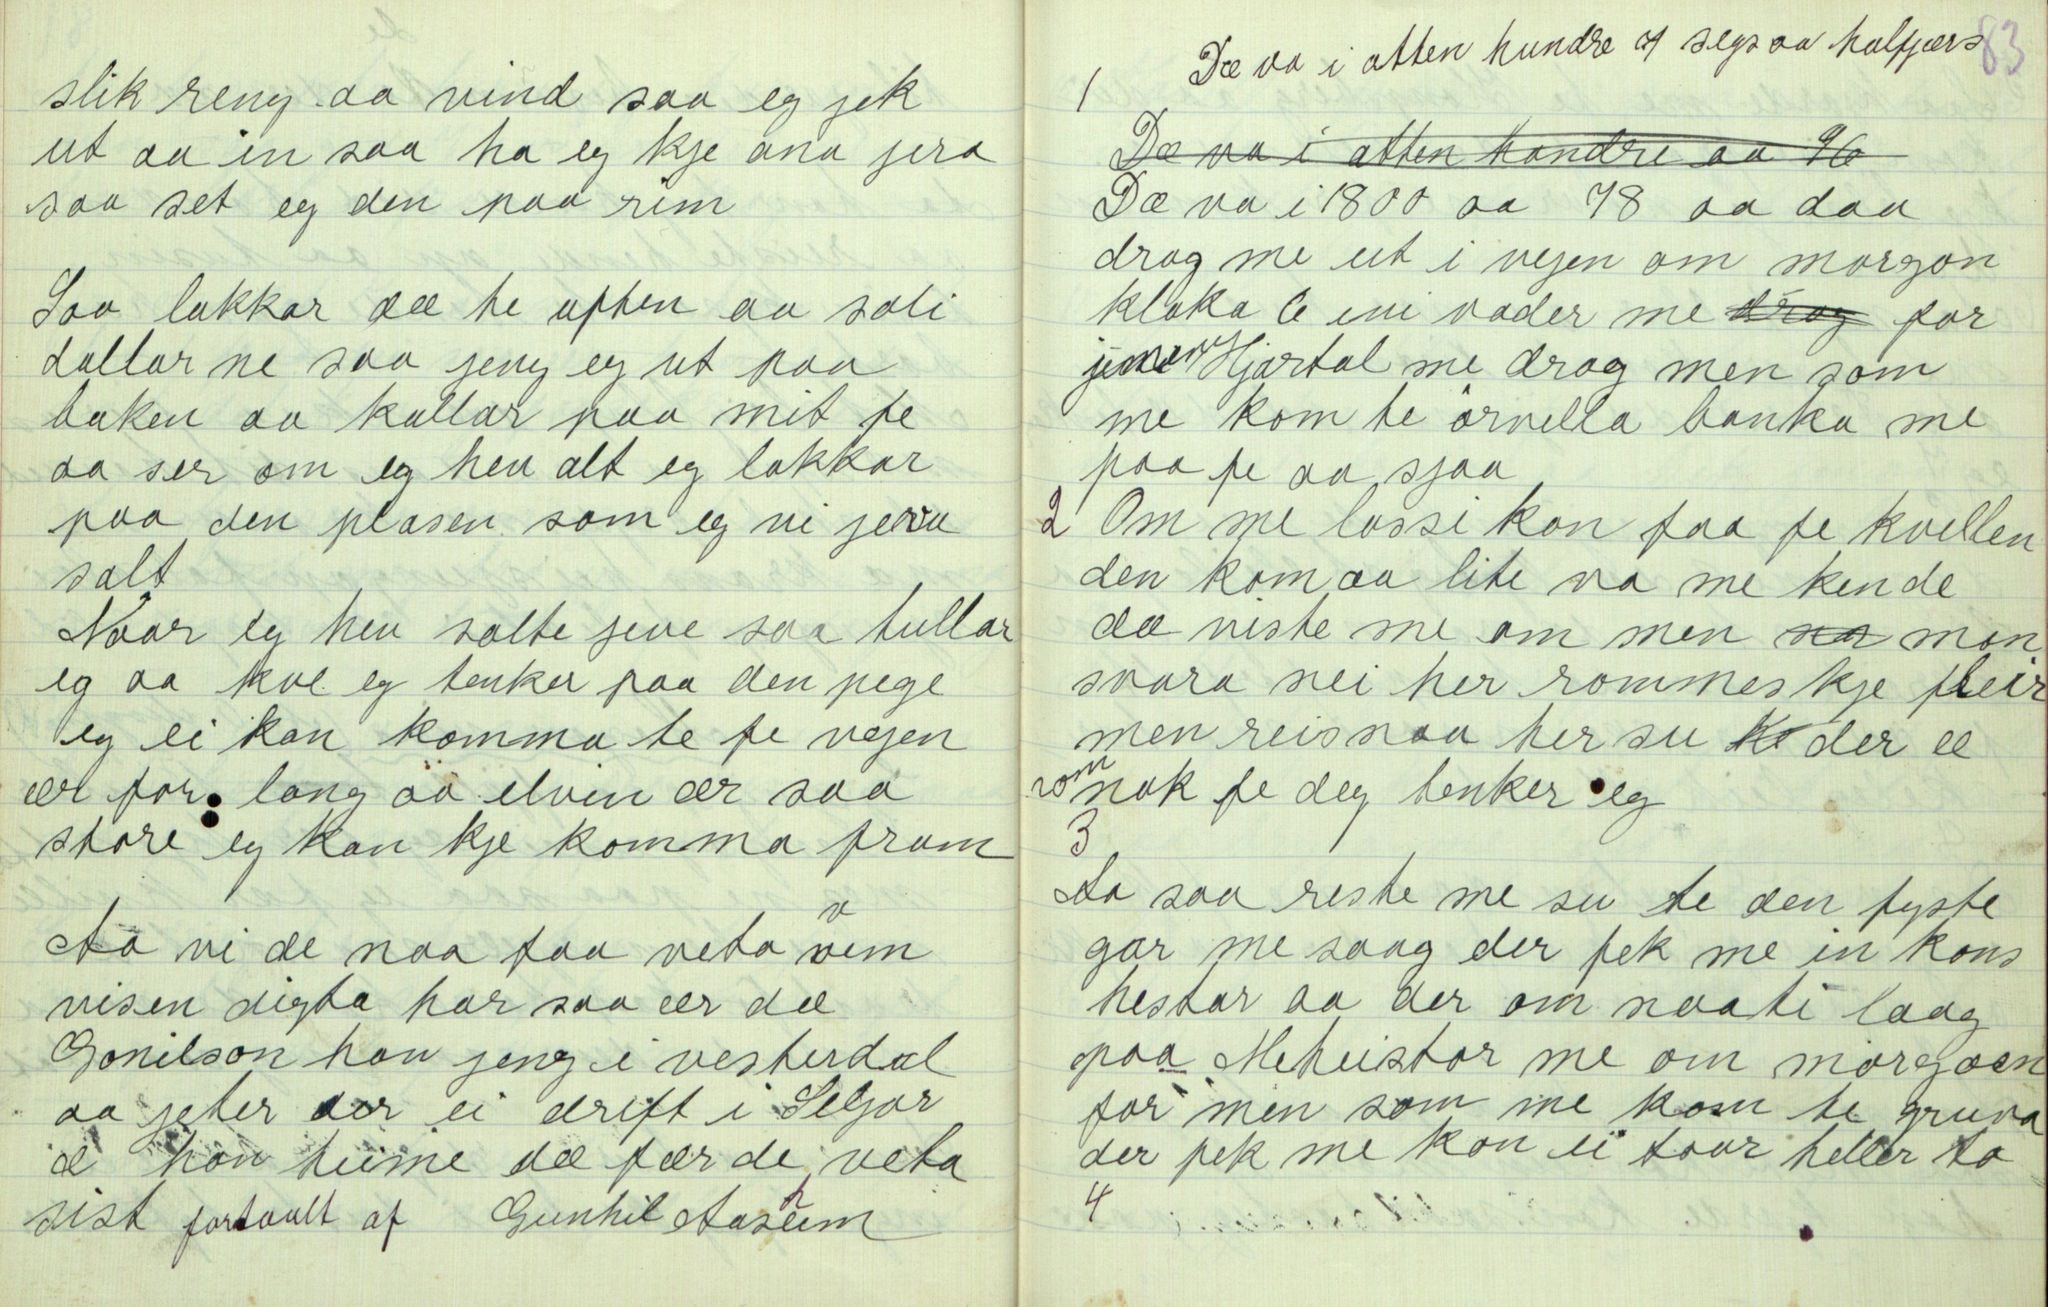 slik reng aa vind saa eg jek
ut aa in saa ha eg kje ana jera
saa set eg den paa rim
Saa lakkar dæ te aften aa soli
dallar ne saa jeng eg ut paa
baken aa kallar paa mit fe
aa ser om eg heu alt eg lakkar
paa den plasen som eg vi jeva
salt
Naar eg heu salte jeve saa tullar
eg aa kve eg tenker paa den pege
eg ei kan komma te fe vejen
ær for lang aa elvin ær saa
store eg kan kje komma fram
Aa vi de naa faa veta vem
visen digta har saa ær dæ
Gonilson han jeng i vesterdal
aa jeter der ei drift i Seljor
æ han heime dæ fær de veta
sist fortaalt af Gunhil Aasheim
83
Dæ va i atten hundre 7 segsaa halfjærs
1
Dæ va i atten hondre aa 96
Dæ va i 1800 aa 78 aa daa
drog me ut i vejen om morgon
kloka 6 eui vader me drog for
jenen Hjartal me drog men som
me kom te örvella banka me
paa fe aa sjaa
2 Om me lossi kon faa fe kvellen
den kom aa lite va me kende
dæ viste me om men na man
svara nei her rommes kje fleir
men reis naa her su der æ
rom nok fe deg tenker eg
3
Aa saa reste me su te den fyste
gar me saag der fek me in kons
hestar aa der om naati laag
paa Meheistar me om morgoen
for men som me kom te gruva
der fek me kon ei taar heller to
4